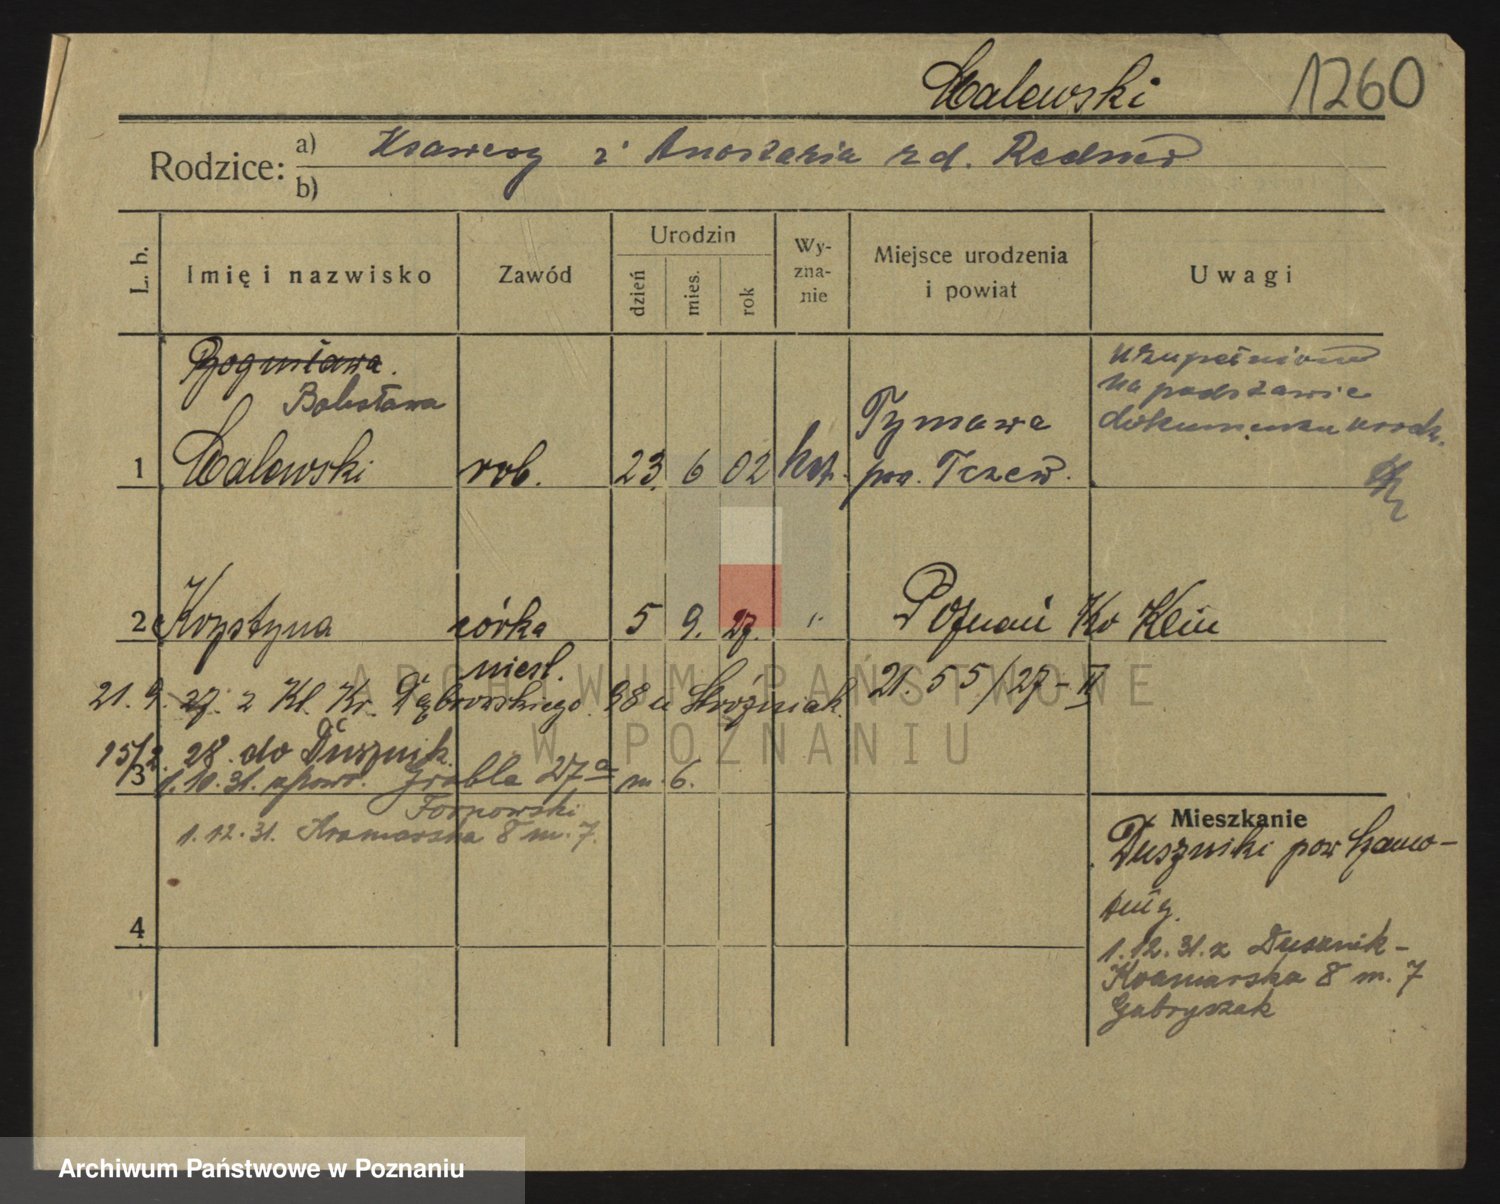 Malewski 1260
Rodzice: a) Ksawery i Anastazia rd.
b)
L. b. Imię i nazwisko Zawód Urodzin dzień mies. rok Wy-zna-nie Miejsce urodzenia i powiat Uwagi
Bogusława.
Bolesława
1 Malewski rob. 23 6 02 kat. Tymawa pow. Tczew.
uzupełniono
na podstawie
dokumentu urodz.
2 Krystyna córka 5 9. 27. " Poznań Kv Klin
niesl.
21. 55/27-II
21. 9. 27. z Kl. Kr. Dąbrowskiego 98 u Stróżniak.
15/2. 28. do Dusznik.
3 1.10.31. Grobla 27a m. 6.
Fornowski
1.12.31. Kramarska 8 m. 7.
4
Mieszkanie
Duszniki pow Szamo-
tuły.
1.12.31. z Dusznik-
Kramarska 8 m. 7
Gabryszak
ARCHIWUM PAŃSTWOWE
W POZNANIU
Archiwum Państwowe w Poznaniu